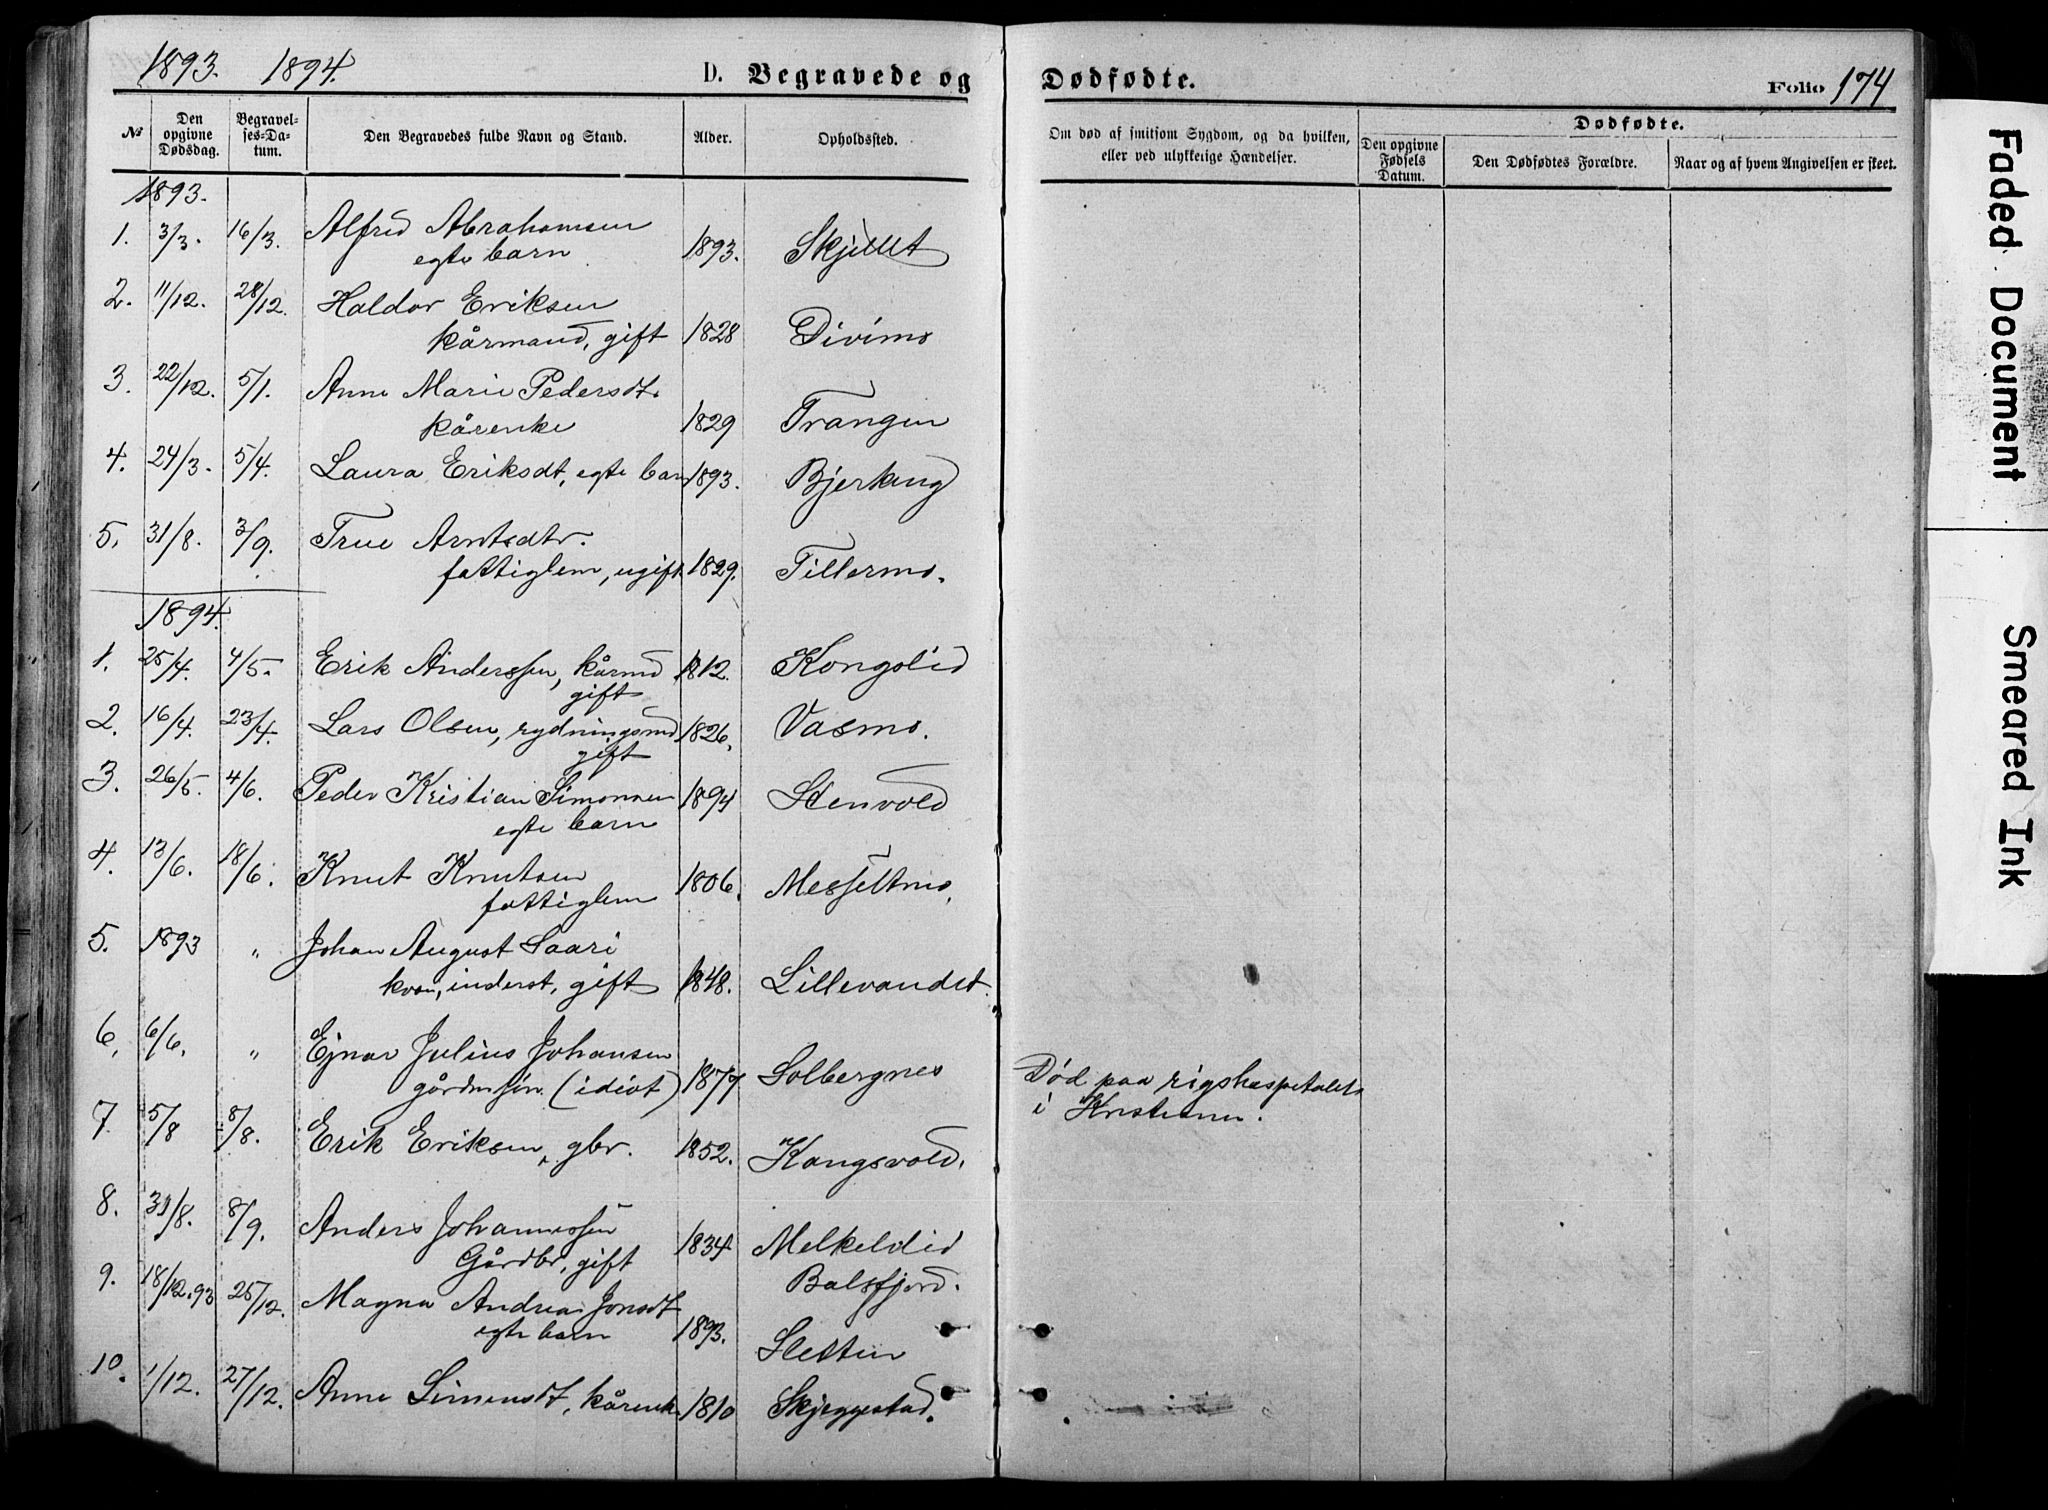 1893. 1894. D. Begravede og Dødfødte. Folio 174
№ Den opgivne Dødsdag. Begravelses-Datum. Den Begravedes fulde Navn og Stand. Alder. Opholdssted. Om død af smitsom Sygdom, og da hvilken, eller ved ulykkelige Hændelser. Dødfødte. Den opgivne Fødsels Datum. Den Dødfødtes Forældre. Naar og af hvem Angivelsen er skeet.
1893.
1. 3/3. 16/3. Alfred Abrahamsen 1893. Skjellet
egte barn
2. 11/12. 28/12. Haldor Eriksen
kårmand, gift 1828 Divimo
3. 22/12. 5/1. Anne Marie Pedersdt.
kårenke 1829 Trangen
4. 24/3. 5/4. Laura Eriksdt, egte barn 1893. Bjerkeng
5. 31/8. 3/9. True Arntsdtr.
fattiglem, ugift 1829. Tillermo.
1894.
1. 25/4. 4/5. Erik Anderssen, kårmd 1812. Kongslid
gift
2. 16/4. 23/4. Lars Olsen, rydningsmd 1826, Vasmo.
gift
3. 26/5. 4/6. Peder Kristian Simonsen 1894 Stenvold
egte barn
4. 13/6. 18/6. Knut Knutsen 1806. Messeltmo.
fattiglem
5. 1893 " Johan August Saari
kvæn, inderst, gift 1848. Lillevandet.
6, 6/6. " Ejnar Julius Johansen
gårdmsøn. (idiot) 1877 Solbergnes Død paa rigshospitalet
i Kristiania.
7. 5/8 8/8. Erik Eriksen, gbr. 1852. Kongsvold.
8. 31/8. 8/9. Anders Johannessen
Gårdbr, gift 1834 Melkelid
Balsfjord.
9. 18/12.93 25/12. Magna Andrea Jonsdt
egte barn 1893. Sletten
10. 1/12. 27/12. Anne Simensdt, kårenk 1810 Skjeggestad.
Faded Document
Smeared Ink